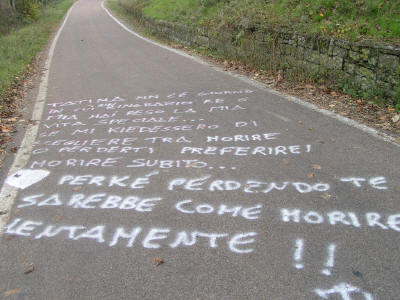 TATINA MN CE GIORNO
KE NN RINGRAZIO KE 6
MIA HAI RESO LA MIA
VITA SPECIALE...
SE MI KIEDESSERO DI
SCEGLIERE TRA MORIRE
O PERDERTI PREFERIREI
MORIRE SUBITO...
PERKÉ PERDENDO TE
SAREBBE COME MORIRE
LENTAMENTE !!